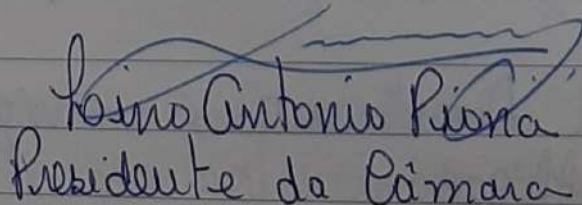 Antonio Piona
Presidente da Câmara